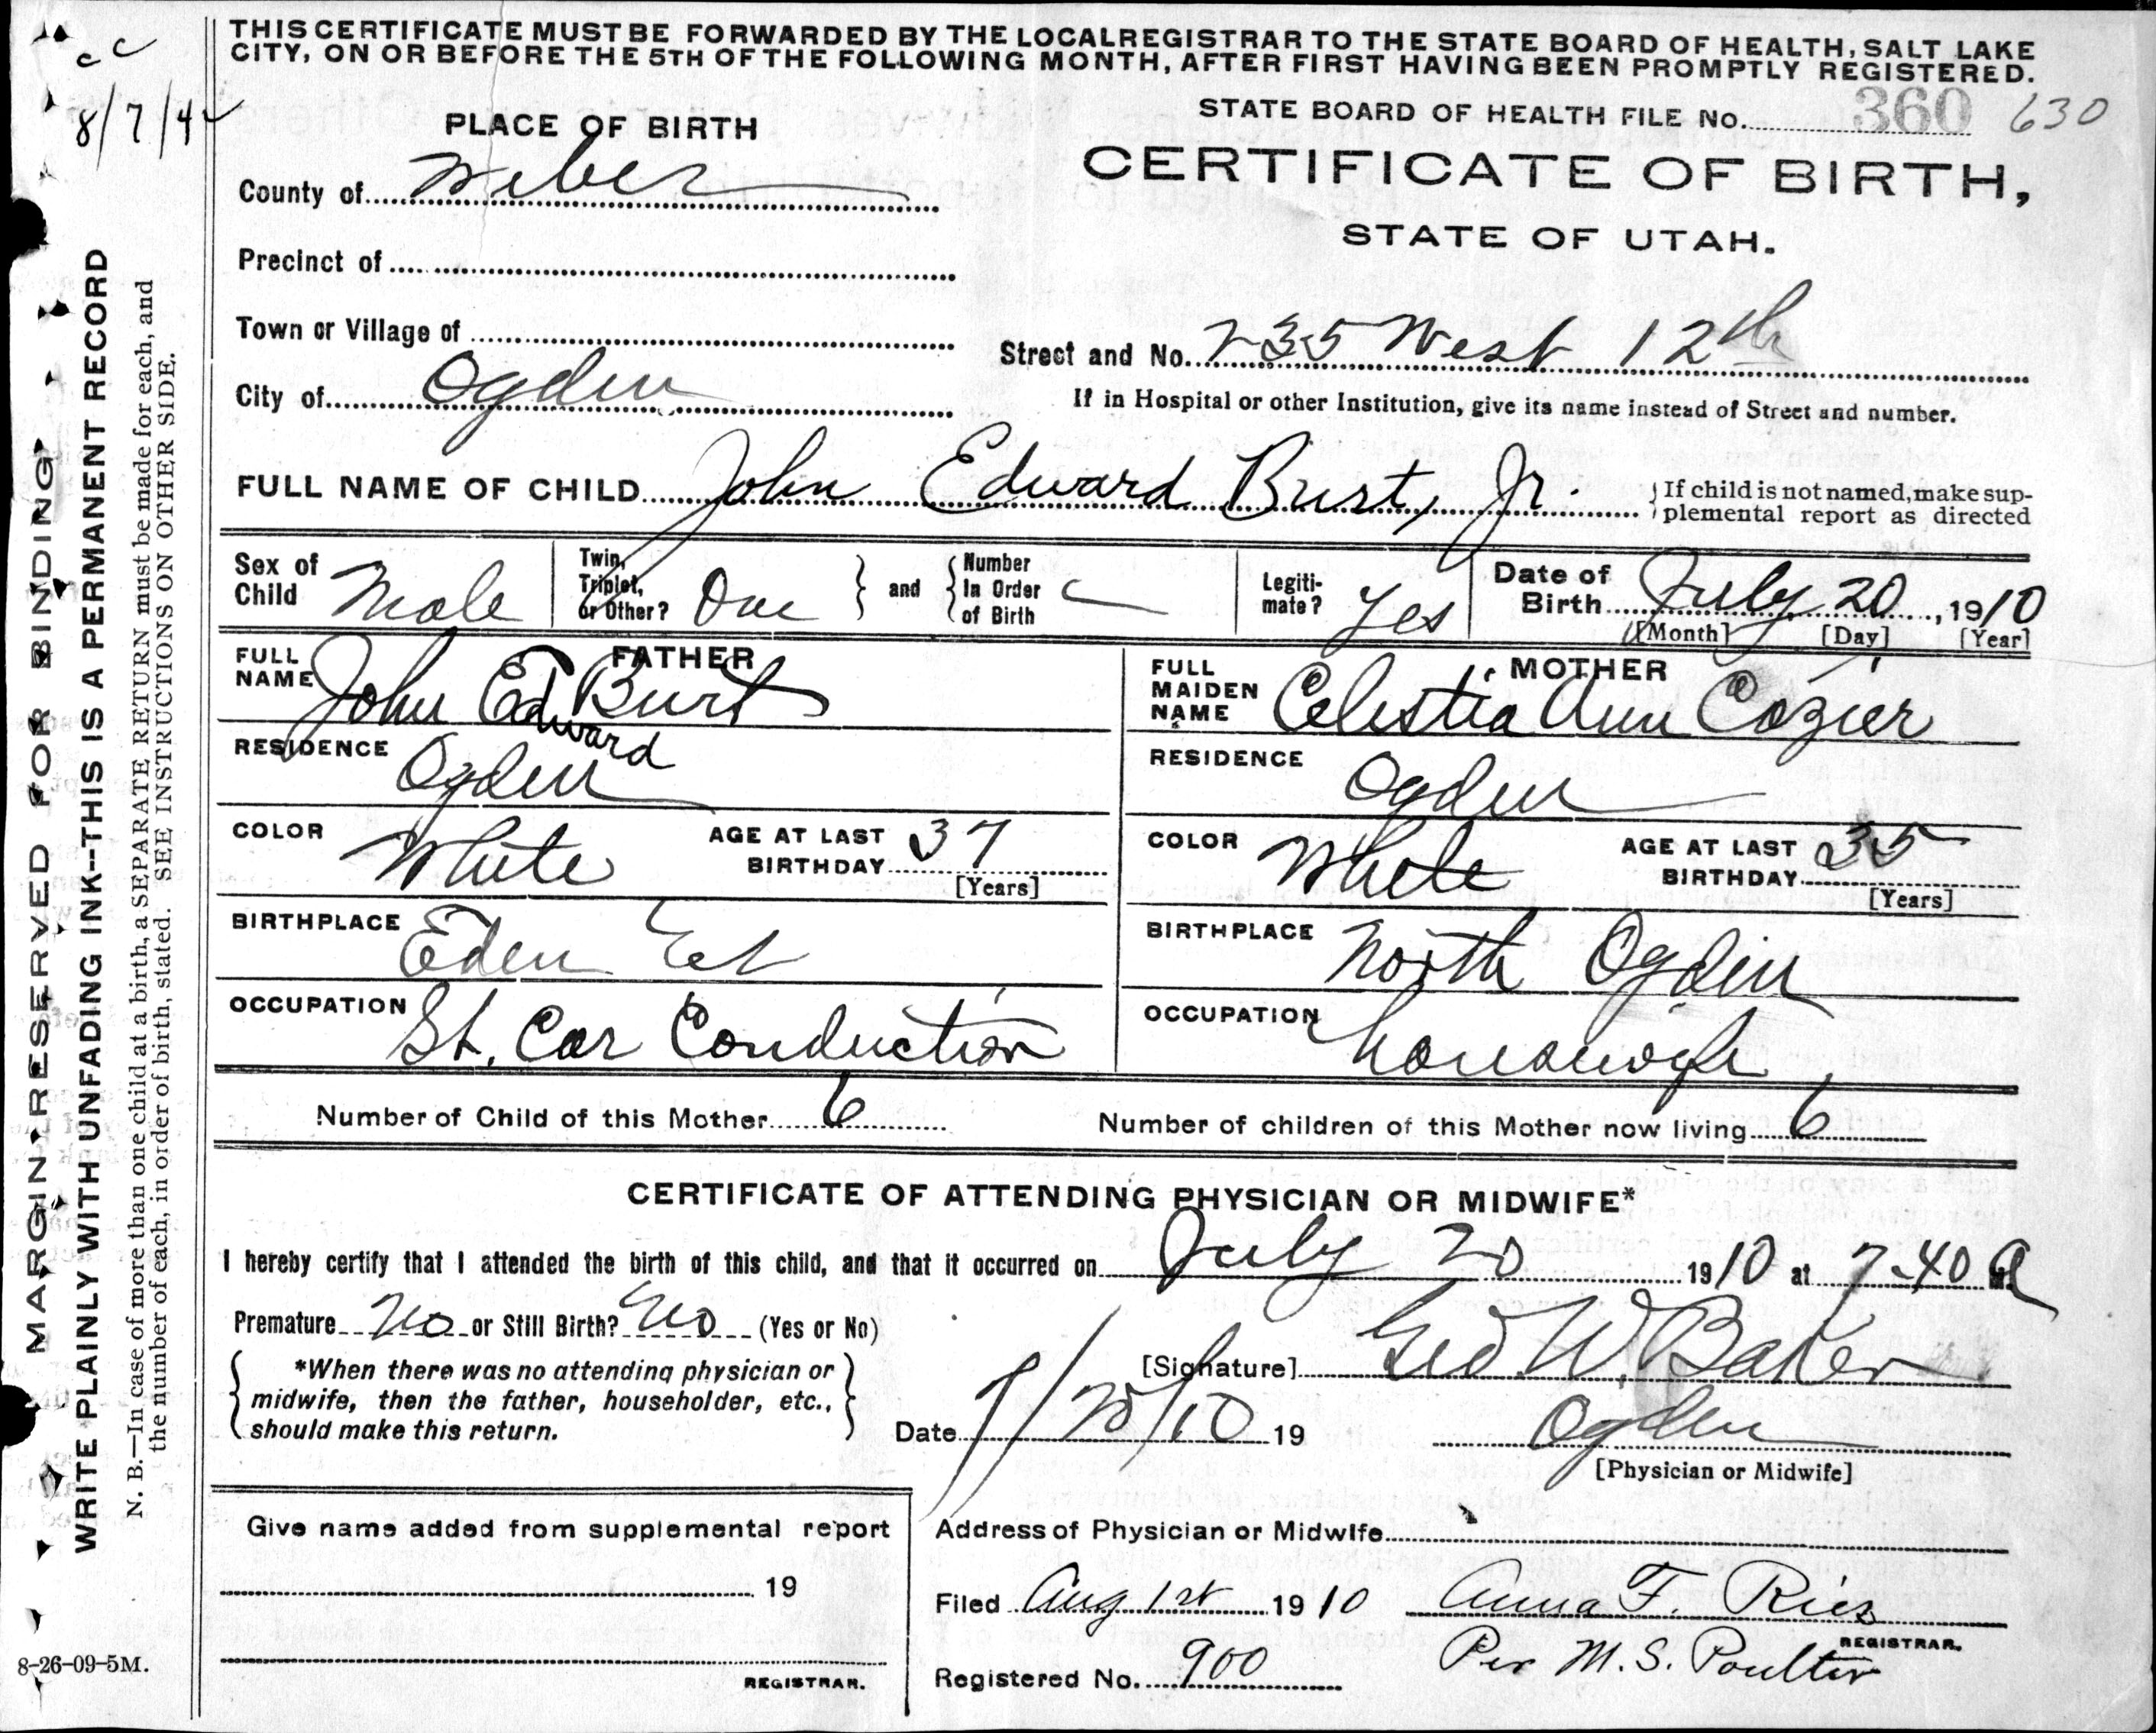 THIS CERTIFICATE MUST BE FORWARDED BY THE LOCAL REGISTRAR TO THE STATE BOARD OF HEALTH, SALT LAKE
CITY, ON OR BEFORE THE 5TH OF THE FOLLOWING MONTH, AFTER FIRST HAVING BEEN PROMPTLY REGISTERED.
cc
8/7/42
STATE BOARD OF HEALTH FILE No. 360 630
PLACE OF BIRTH
CERTIFICATE OF BIRTH,
STATE OF UTAH.
County of Weber
Precinct of
Town or Village of
Street and No. 235 West 12th
City of Ogden
If in Hospital or other Institution, give its name instead of Street and number.
FULL NAME OF CHILD John Edward Burt, Jr.
If child is not named, make sup-
plemental report as directed
Sex of Child Male
Twin, Triplet, or Other? One
and
Number In Order of Birth
Legiti-mate? Yes
Date of Birth July 20, 1910
[Month] [Day] [Year]
FATHER
FULL NAME John Ed Burt
Edward
RESIDENCE Ogden
COLOR White
AGE AT LAST BIRTHDAY 37
[Years]
BIRTHPLACE Eden Ut
OCCUPATION St. Car Conduction
MOTHER
FULL MAIDEN NAME Celestia Ann Cozier
RESIDENCE Ogden
COLOR White
AGE AT LAST BIRTHDAY 35
[Years]
BIRTHPLACE North Ogden
OCCUPATION housewife
Number of Child of this Mother 6
Number of children of this Mother now living 6
CERTIFICATE OF ATTENDING PHYSICIAN OR MIDWIFE*
I hereby certify that I attended the birth of this child, and that it occurred on July 20 1910 at 7-40 a M.
Premature No or Still Birth? No (Yes or No)
*When there was no attending physician or
midwife, then the father, householder, etc.,
should make this return.
[Signature] Geo W. Baker
Date 7/25/10 19
Ogden
[Physician or Midwife]
Give name added from supplemental report
19
REGISTRAR.
Address of Physician or Midwife
Filed Aug 1st 1910 Anna F. Ries
REGISTRAR.
Registered No. 900
Per M. S. Poulter
MARGIN RESERVED FOR BINDING
WRITE PLAINLY WITH UNFADING INK--THIS IS A PERMANENT RECORD
N. B.—In case of more than one child at a birth, a SEPARATE RETURN must be made for each, and
the number of each, in order of birth, stated. SEE INSTRUCTIONS ON OTHER SIDE.
8-26-09-5M.